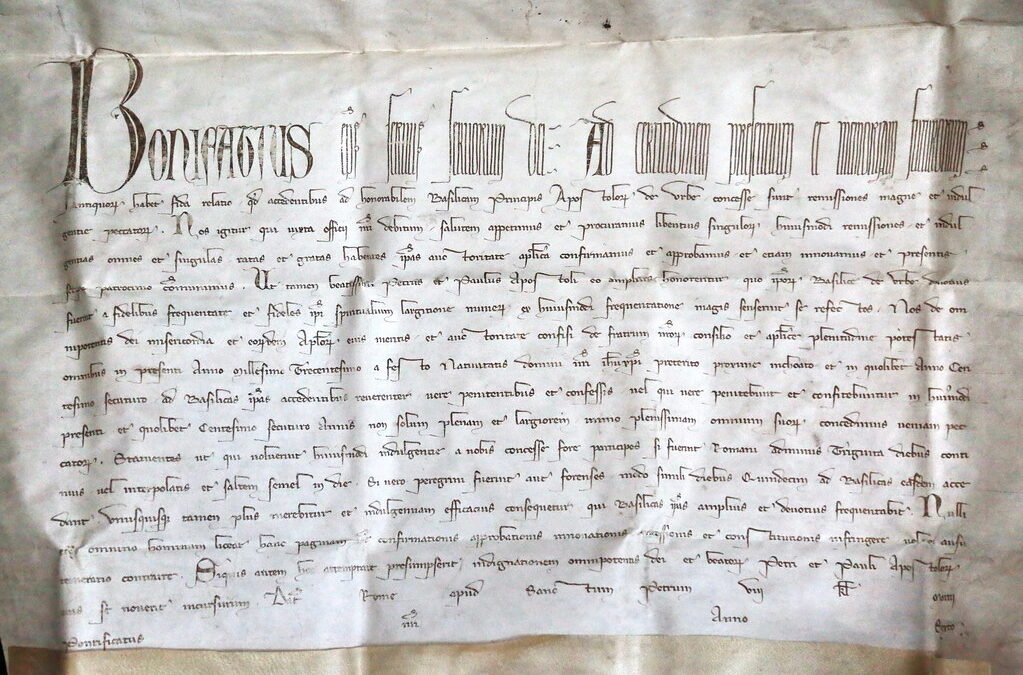 Bonifatius eps servus servorum dei. Ad certitudinem presentium et memoriam futurorum
Antiquor habet fida relatio qd accedentibus ad honorabilem Basilicam Principis Apostolor de Urbe concesse sunt remissiones magne et indul
gentie peccator. Nos igitur qui iuxta officij nri debitum salutem appetimus et procuramus libentius singulor huiusmodi remissiones et indul
gentias omnes et singulas ratas et gratas habentes ipas auctoritate aplica confirmamus et approbamus et etiam innovamus et presentis
scripti patrocinio comunimus. Ut tamen beatissimi Petrus et Paulus Apostoli eo amplius honorentur quo ipor Basilice de Urbe devotius
fuerint a fidelibus frequentate et fideles ipi spiritualium largitione muner ex huiusmodi frequentatione magis senserint se refectos. Nos de om
nipotentis dei misericordia et eordem Aplor eius meritis et auctoritate confisi de fratrum nror consilio et aplice plenitudine potestatis
omnibus in presenti Anno Millesimo Trecentesimo a festo Nativitatis domini nri ihu xpi preterito proxime inchoato et in quolibet Anno Cen
tesimo secuturo ad Basilicas ipas accedentibus reverenter vere penitentibus et confessis vel qui vere penitebunt et confitebuntur in huiusmodi
presenti et quolibet Centesimo secuturo Annis non solum plenam et largiorem immo plenissimam omnium suor concedimus veniam pec
cator. Statuentes ut qui voluerint huiusmodi indulgentie a nobis concesse fore participes si fuerint Romani adminus Triginta diebus conti
nuis vel interpolatis et saltem semel in die. Si vero peregrini fuerint aut forenses modo simili diebus Quindecim ad Basilicas easdem acce
dant. Unusquisque tamen plus merebitur et indulgentiam efficacius consequetur qui Basilicas ipas amplius et devotius frequentabit. Nulli
ergo omnino hominum liceat hanc paginam nre confirmationis approbationis innovationis concessionis et constitutionis infringere vel ei ausu
temerario contraire. Siquis autem hoc attemptare presumpserit indignationem omnipotentis dei et beator Petri et Pauli Apostolor
eius se noverit incursurum. Dat Rome apud Sanctum Petrum viij kl
Pontificatus nri Anno Sexto